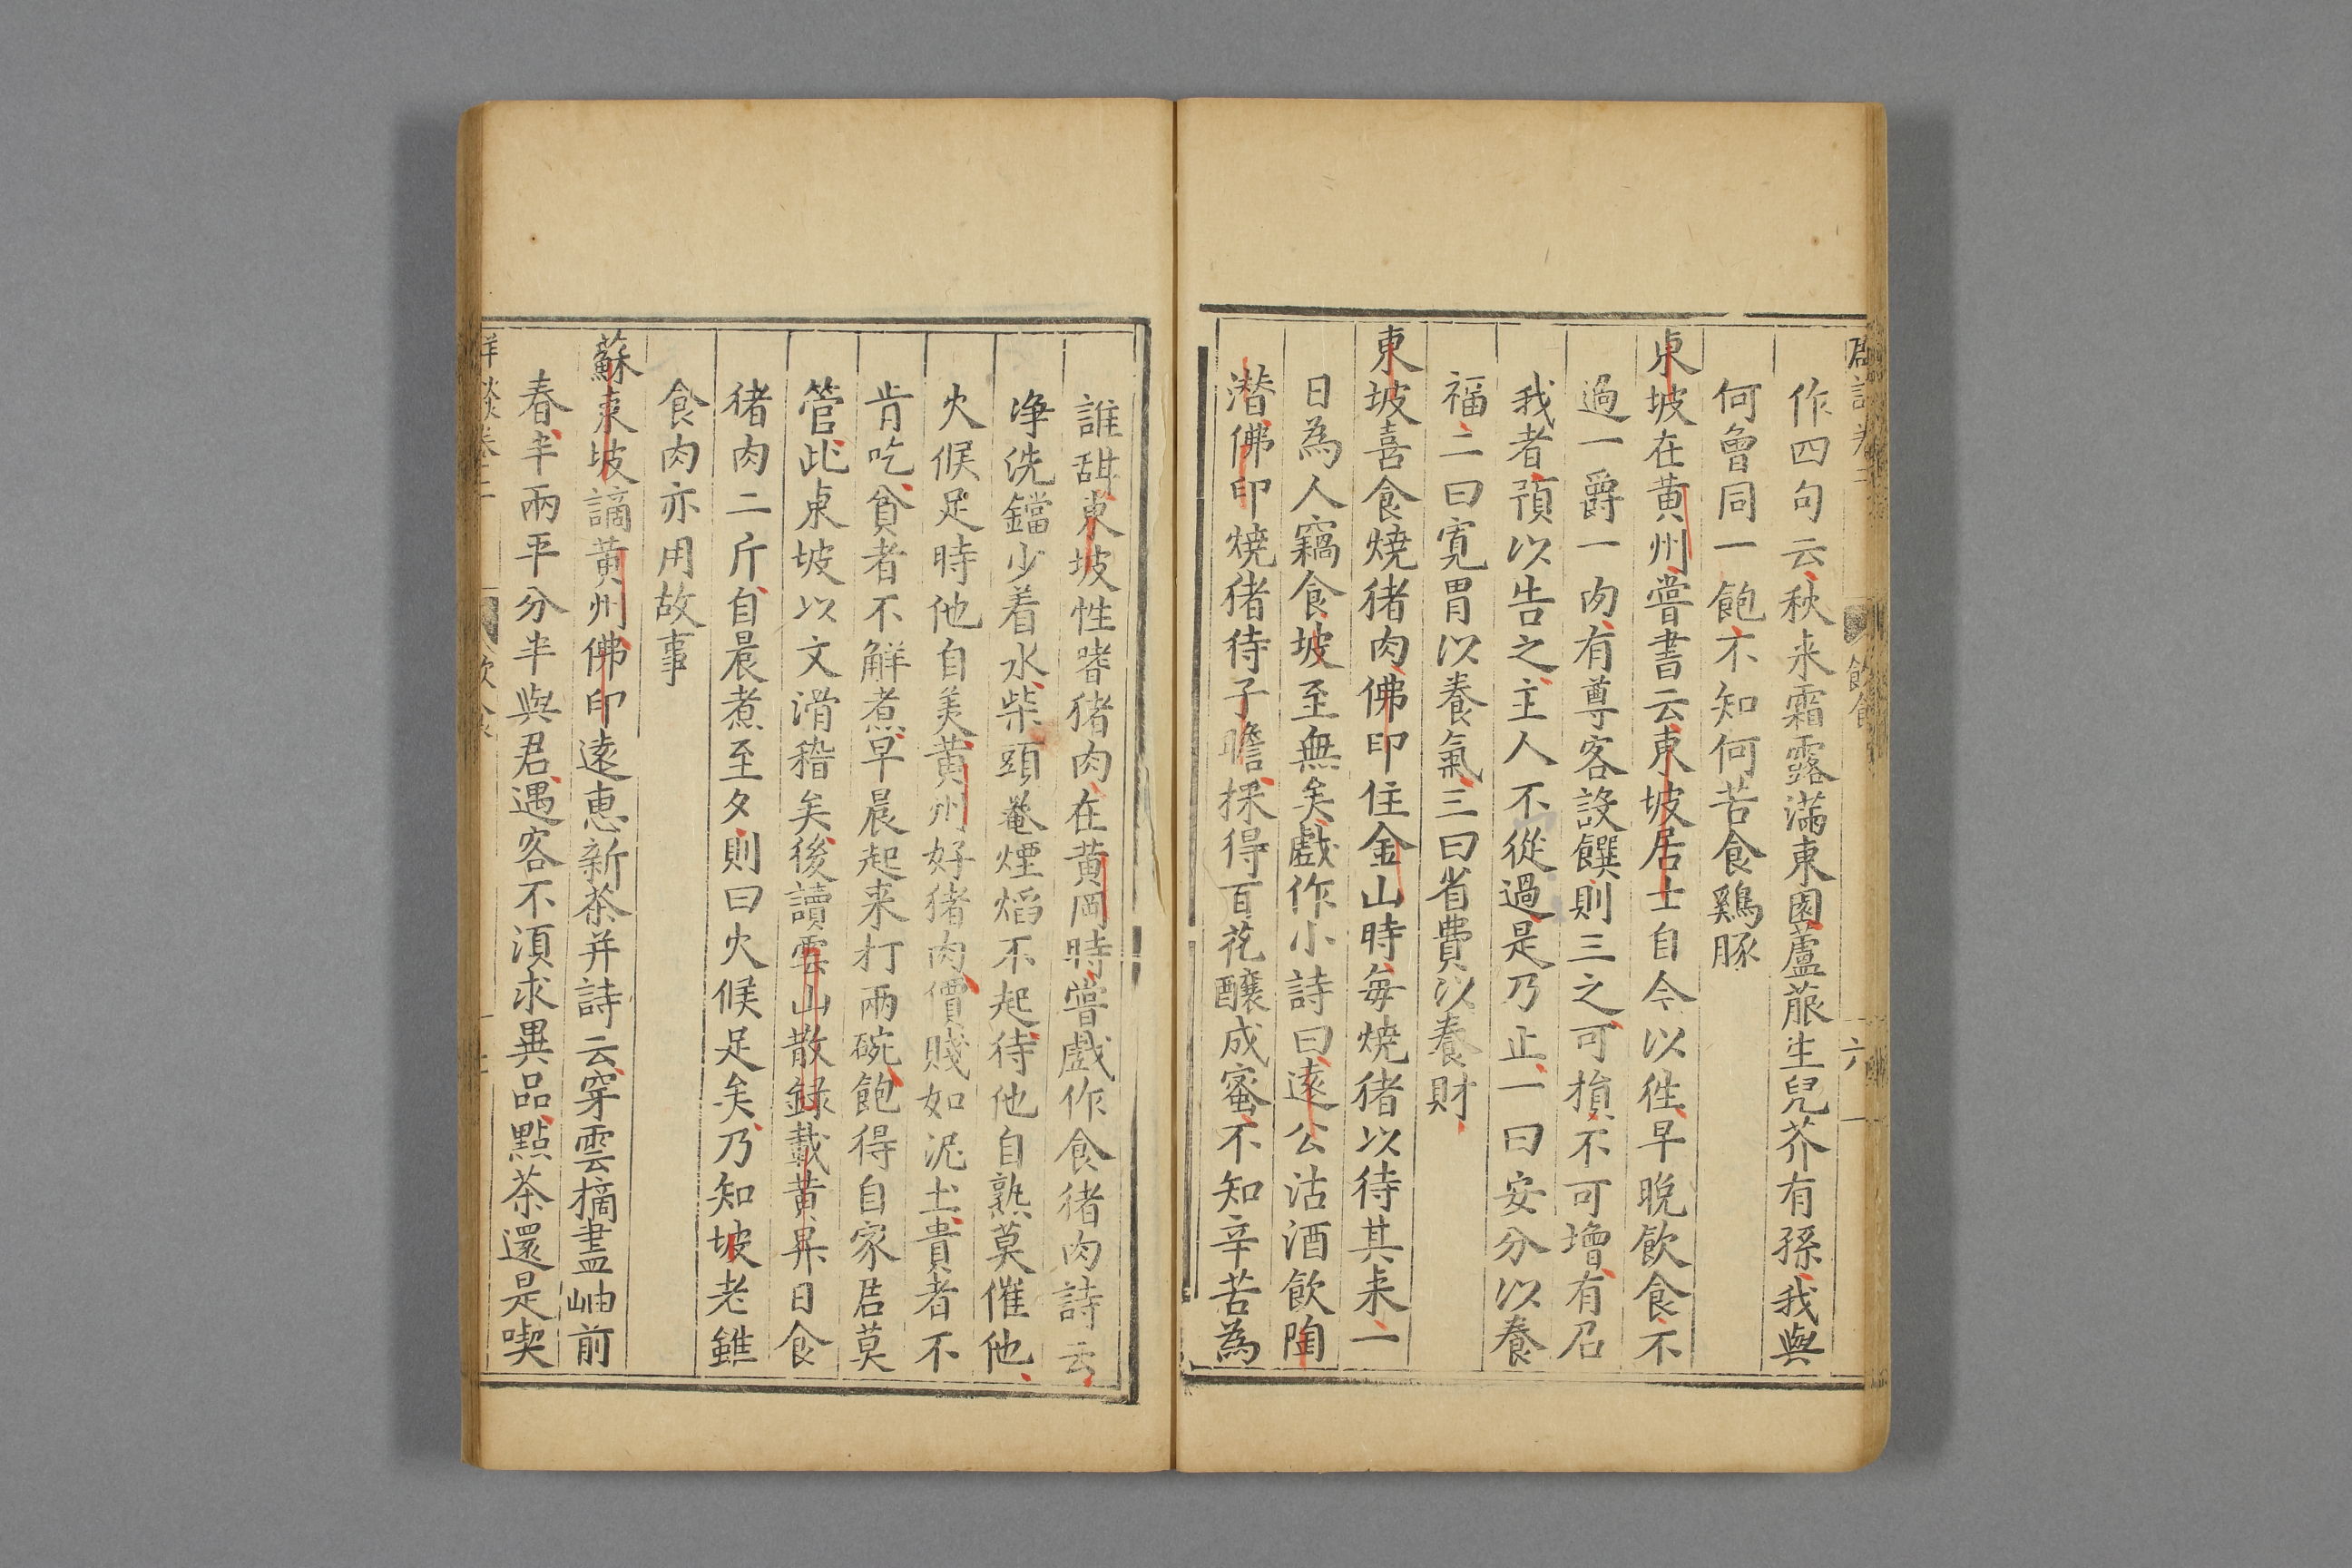 作四句云秋来霜露滿東園蘆菔生兒芥有孫我與
何曾同一飽不知何苦食鷄豚
東坡在黃州嘗書云東坡居士自今以徃早晚飲食不
過一爵一肉有尊客設饌則三之可損不可增有召
我者預以告之主人不從過是乃止一曰安分以養
福二曰寬胃以養氣三曰省費以養財
東坡喜食燒猪肉佛印住金山時每燒猪以待其来一
日為人竊食坡至無矣戲作小詩曰遠公沽酒飲陶
潜佛印燒猪待子瞻採得百花釀成蜜不知辛苦為
誰甜東坡性嗜猪肉在黃岡時嘗戲作食猪肉詩云
净洗鐺少着水柴頭罨煙焰不起待他自熟莫催他
火候足時他自美黃州好猪肉價賤如泥土貴者不
肯吃貧者不解煮早晨起来打兩碗飽得自家君莫
管此東坡以文滑稽矣後讀雲山散錄載黃昇日食
猪肉二斤自晨煮至夕則曰火候足矣乃知坡老雖
食肉亦用故事
蘇東坡謫黃州佛印遠惠新茶并詩云穿雲摘盡岫前
春半兩平分半與君遇客不須求異品點茶還是喫
飲食
六